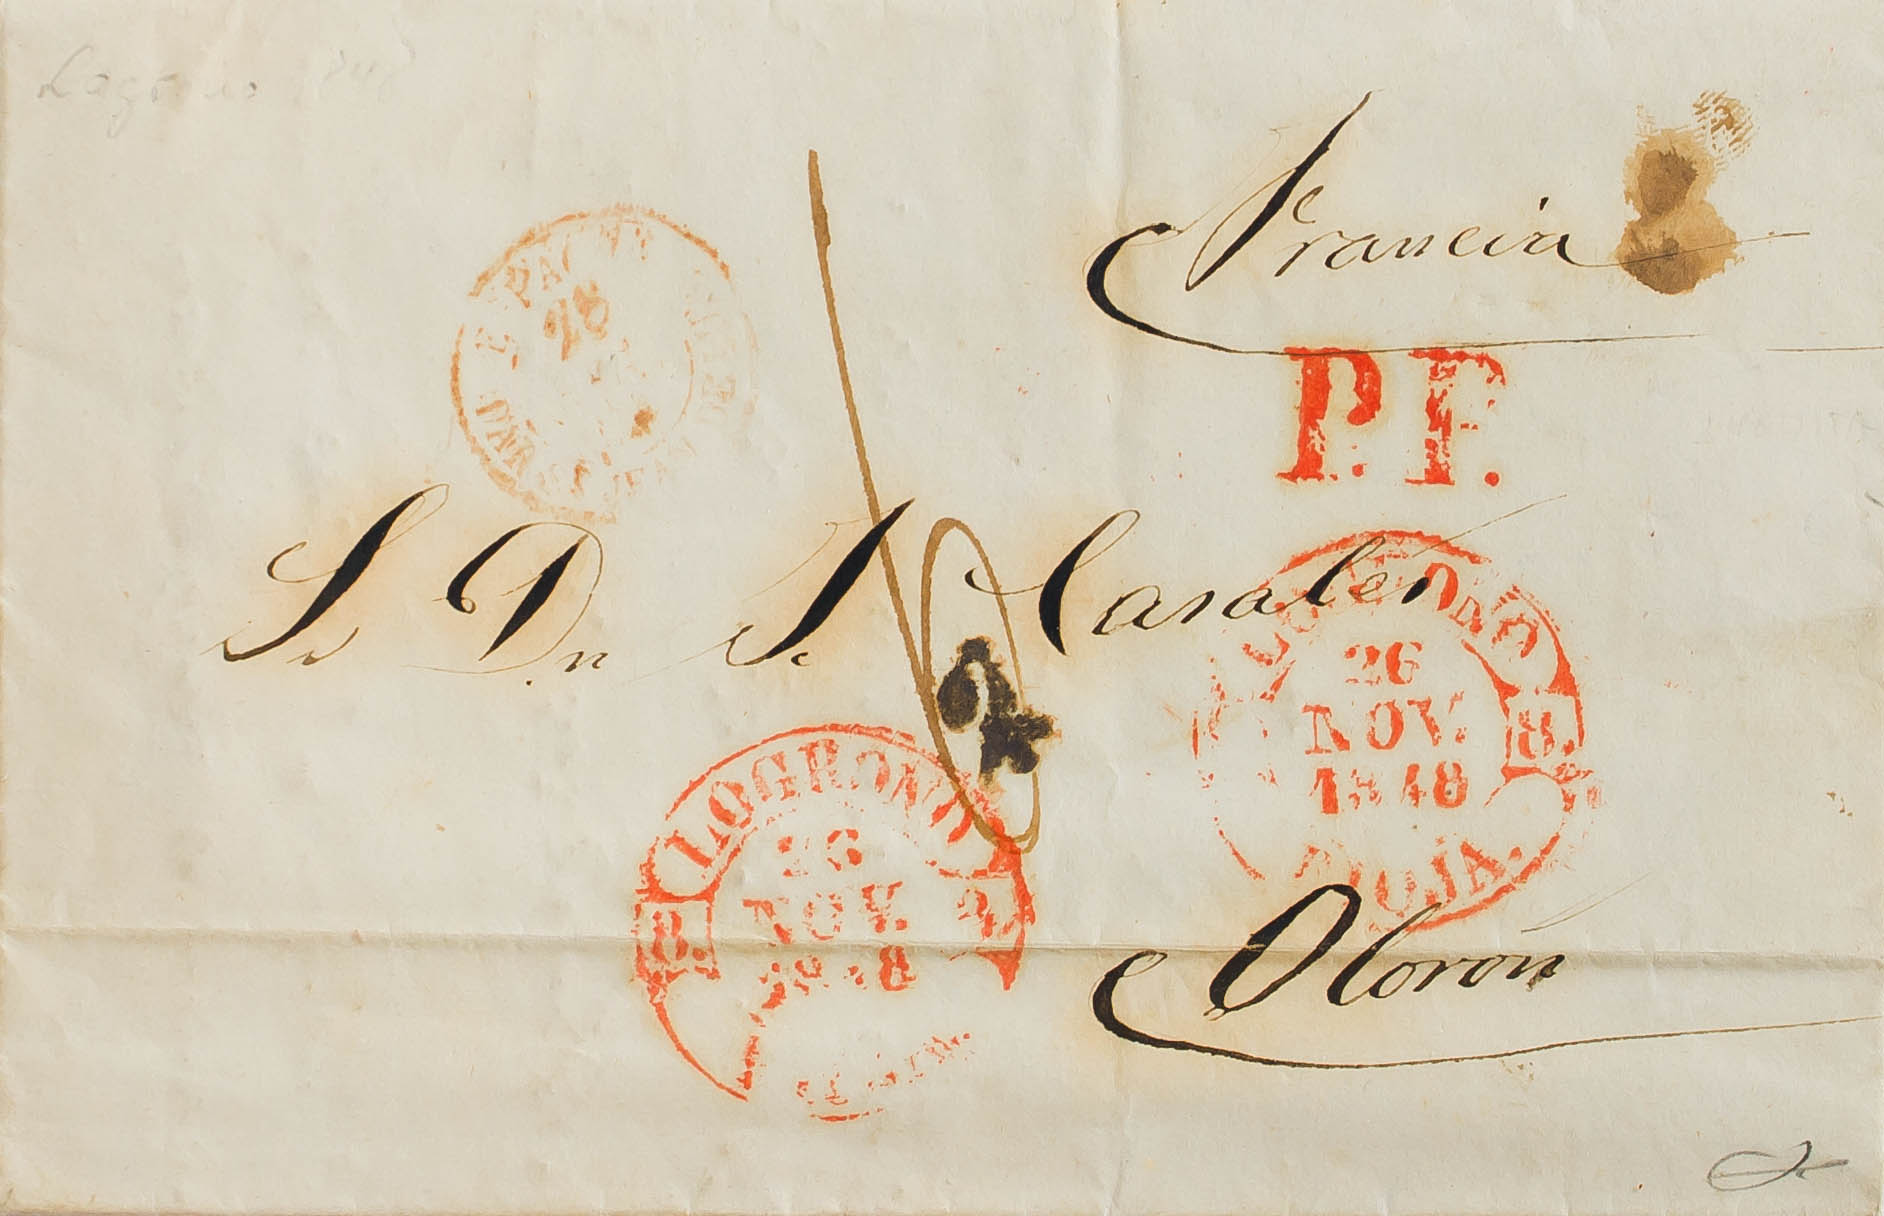 Logroño 1848
Francia
ESPAGNE
28
P.P.
Sr Dn J. Casales
LOGROÑO
26
NOV.
1848
RIOJA.
LOGROÑO
26
NOV.
1848
RIOJA.
Oloron